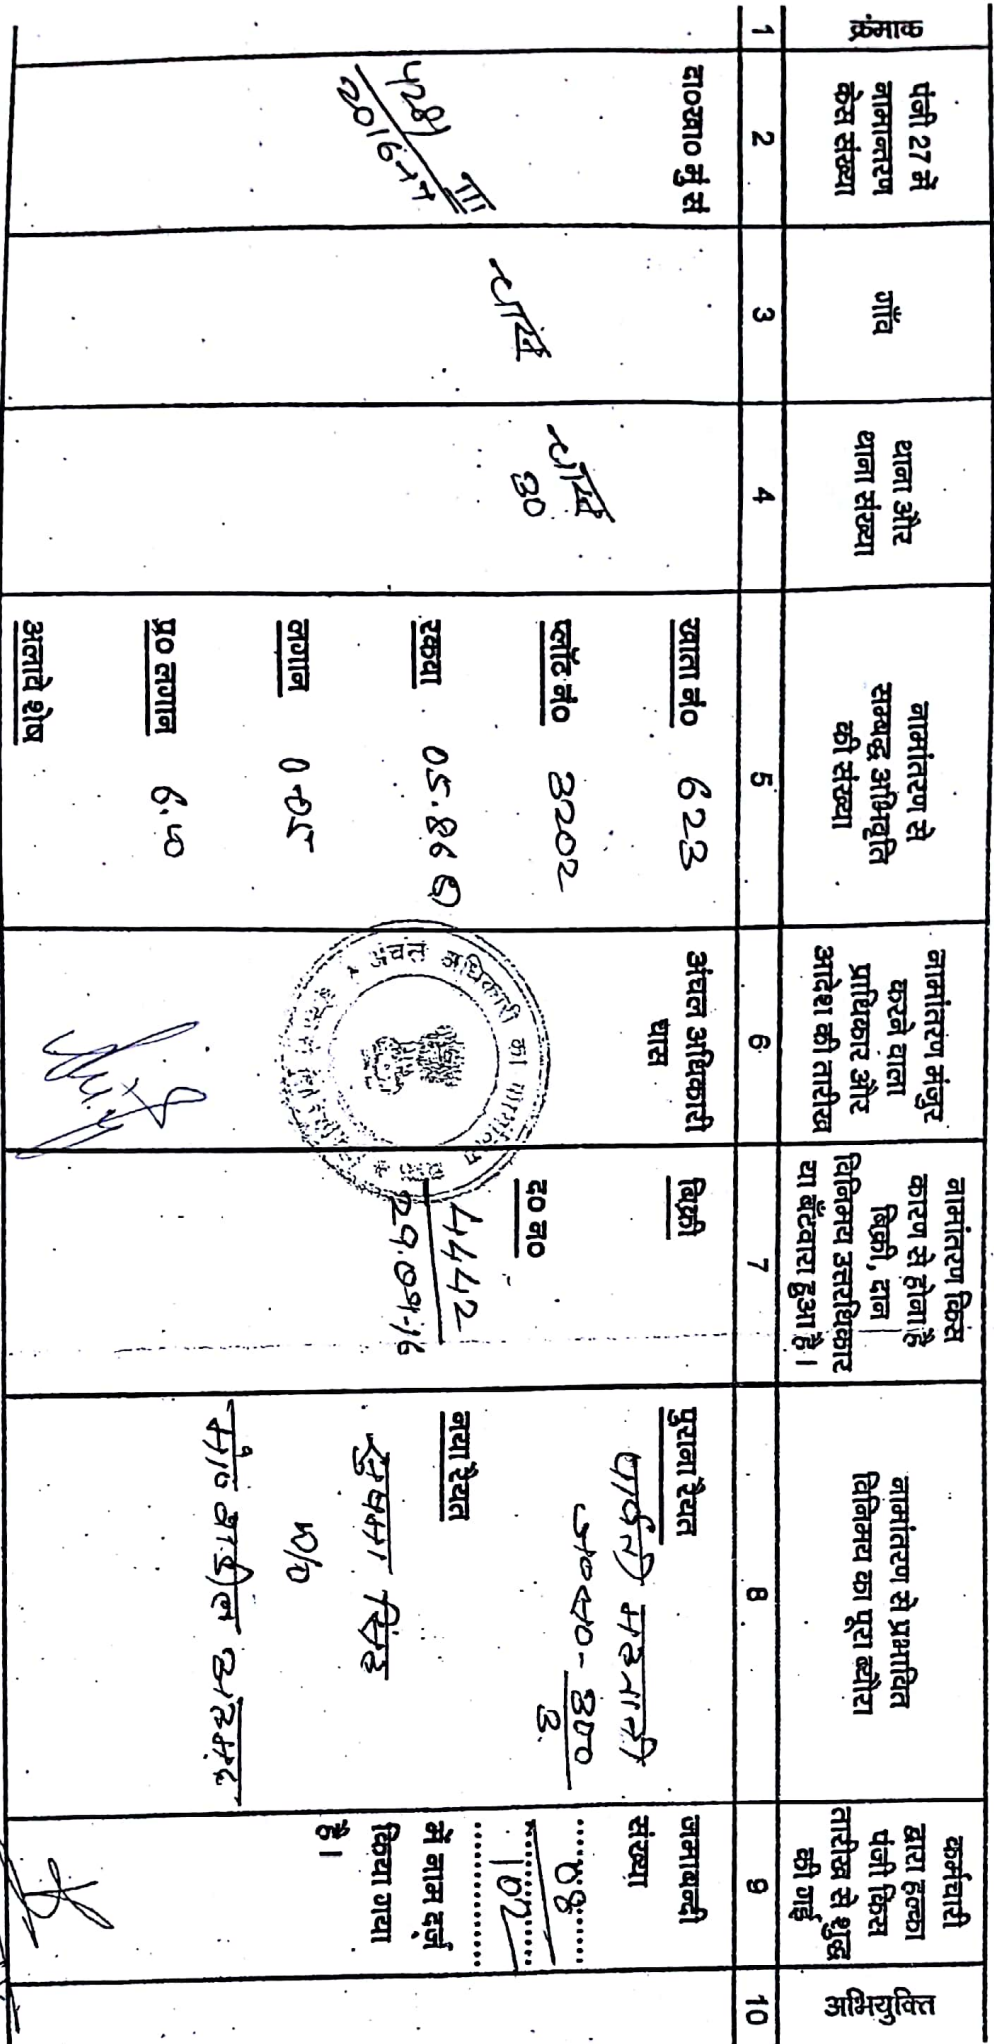 क्रमांक
पंजी 27 में
नामान्तरण
केस संख्या
गाँव
थाना और
थाना संख्या
नामांतरण से
सम्बद्ध अभिवृति
की संख्या
नामांतरण मंजुर
करने वाला
प्राधिकार और
आदेश की तारीख
नामांतरण किस
कारण से होना है
बिक्री, दान
विनिमय उत्तराधिकार
या बँटवारा हुआ है।
नामांतरण से प्रभावित
विनिमय का पूरा ब्योरा
कर्मचारी
द्वारा हल्का
पंजी किस
तारीख से शुद्ध
की गई
अभियुक्ति
1 2 3 4 5 6 7 8 9 10
दा०खा० मु० सं
4281 III
2016-17
चास
चास
30
खाता नं० 623
प्लॉट नं० 3202
रकवा 05.86 डी
लगान 0-05
प्र० लगान 6.40
अलावे शेष
अंचल अधिकारी
चास
अंचल अधिकारी का कार्यालय
बिक्री
द० न०
4442
29.09.16
पुराना रैयत
पार्वती महतानी
नया रैयत
सुषमा सिंह
W/O
जमाबन्दी
संख्या
102
में नाम दर्ज
किया गया
है।